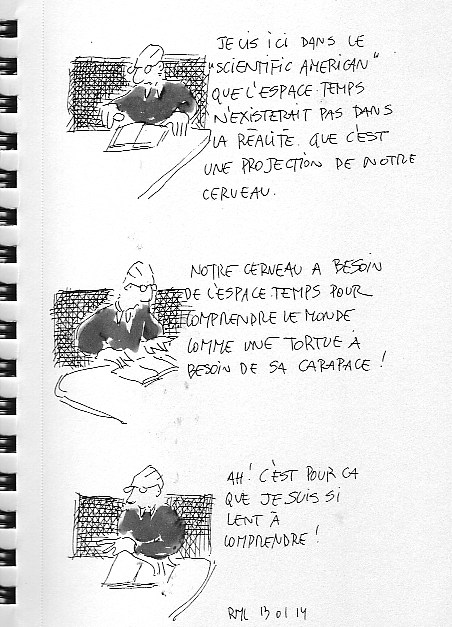 JE LIS ICI DANS LE
"SCIENTIFIC AMERICAN"
QUE L'ESPACE-TEMPS
N'EXISTERAIT PAS DANS
LA RÉALITÉ. QUE C'EST
UNE PROJECTION DE NOTRE
CERVEAU.
NOTRE CERVEAU A BESOIN
DE L'ESPACE TEMPS POUR
COMPRENDRE LE MONDE
COMME UNE TORTUE À
BESOIN DE SA CARAPACE !
AH! C'EST POUR CA
QUE JE SUIS SI
LENT À
COMPRENDRE !
RML 13 01 14